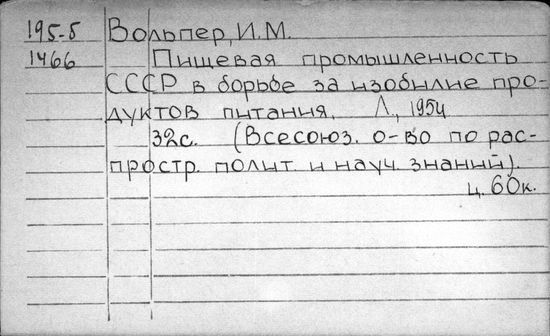 195-5 Вольпер, И.М.
1466 Пищевая промышленность
СССР в борьбе за изобилие про-
дуктов питания. Л., 1954
32с. (Всесоюз. о-во по рас-
простр. полит. и науч. знаний).
ц. 60к.